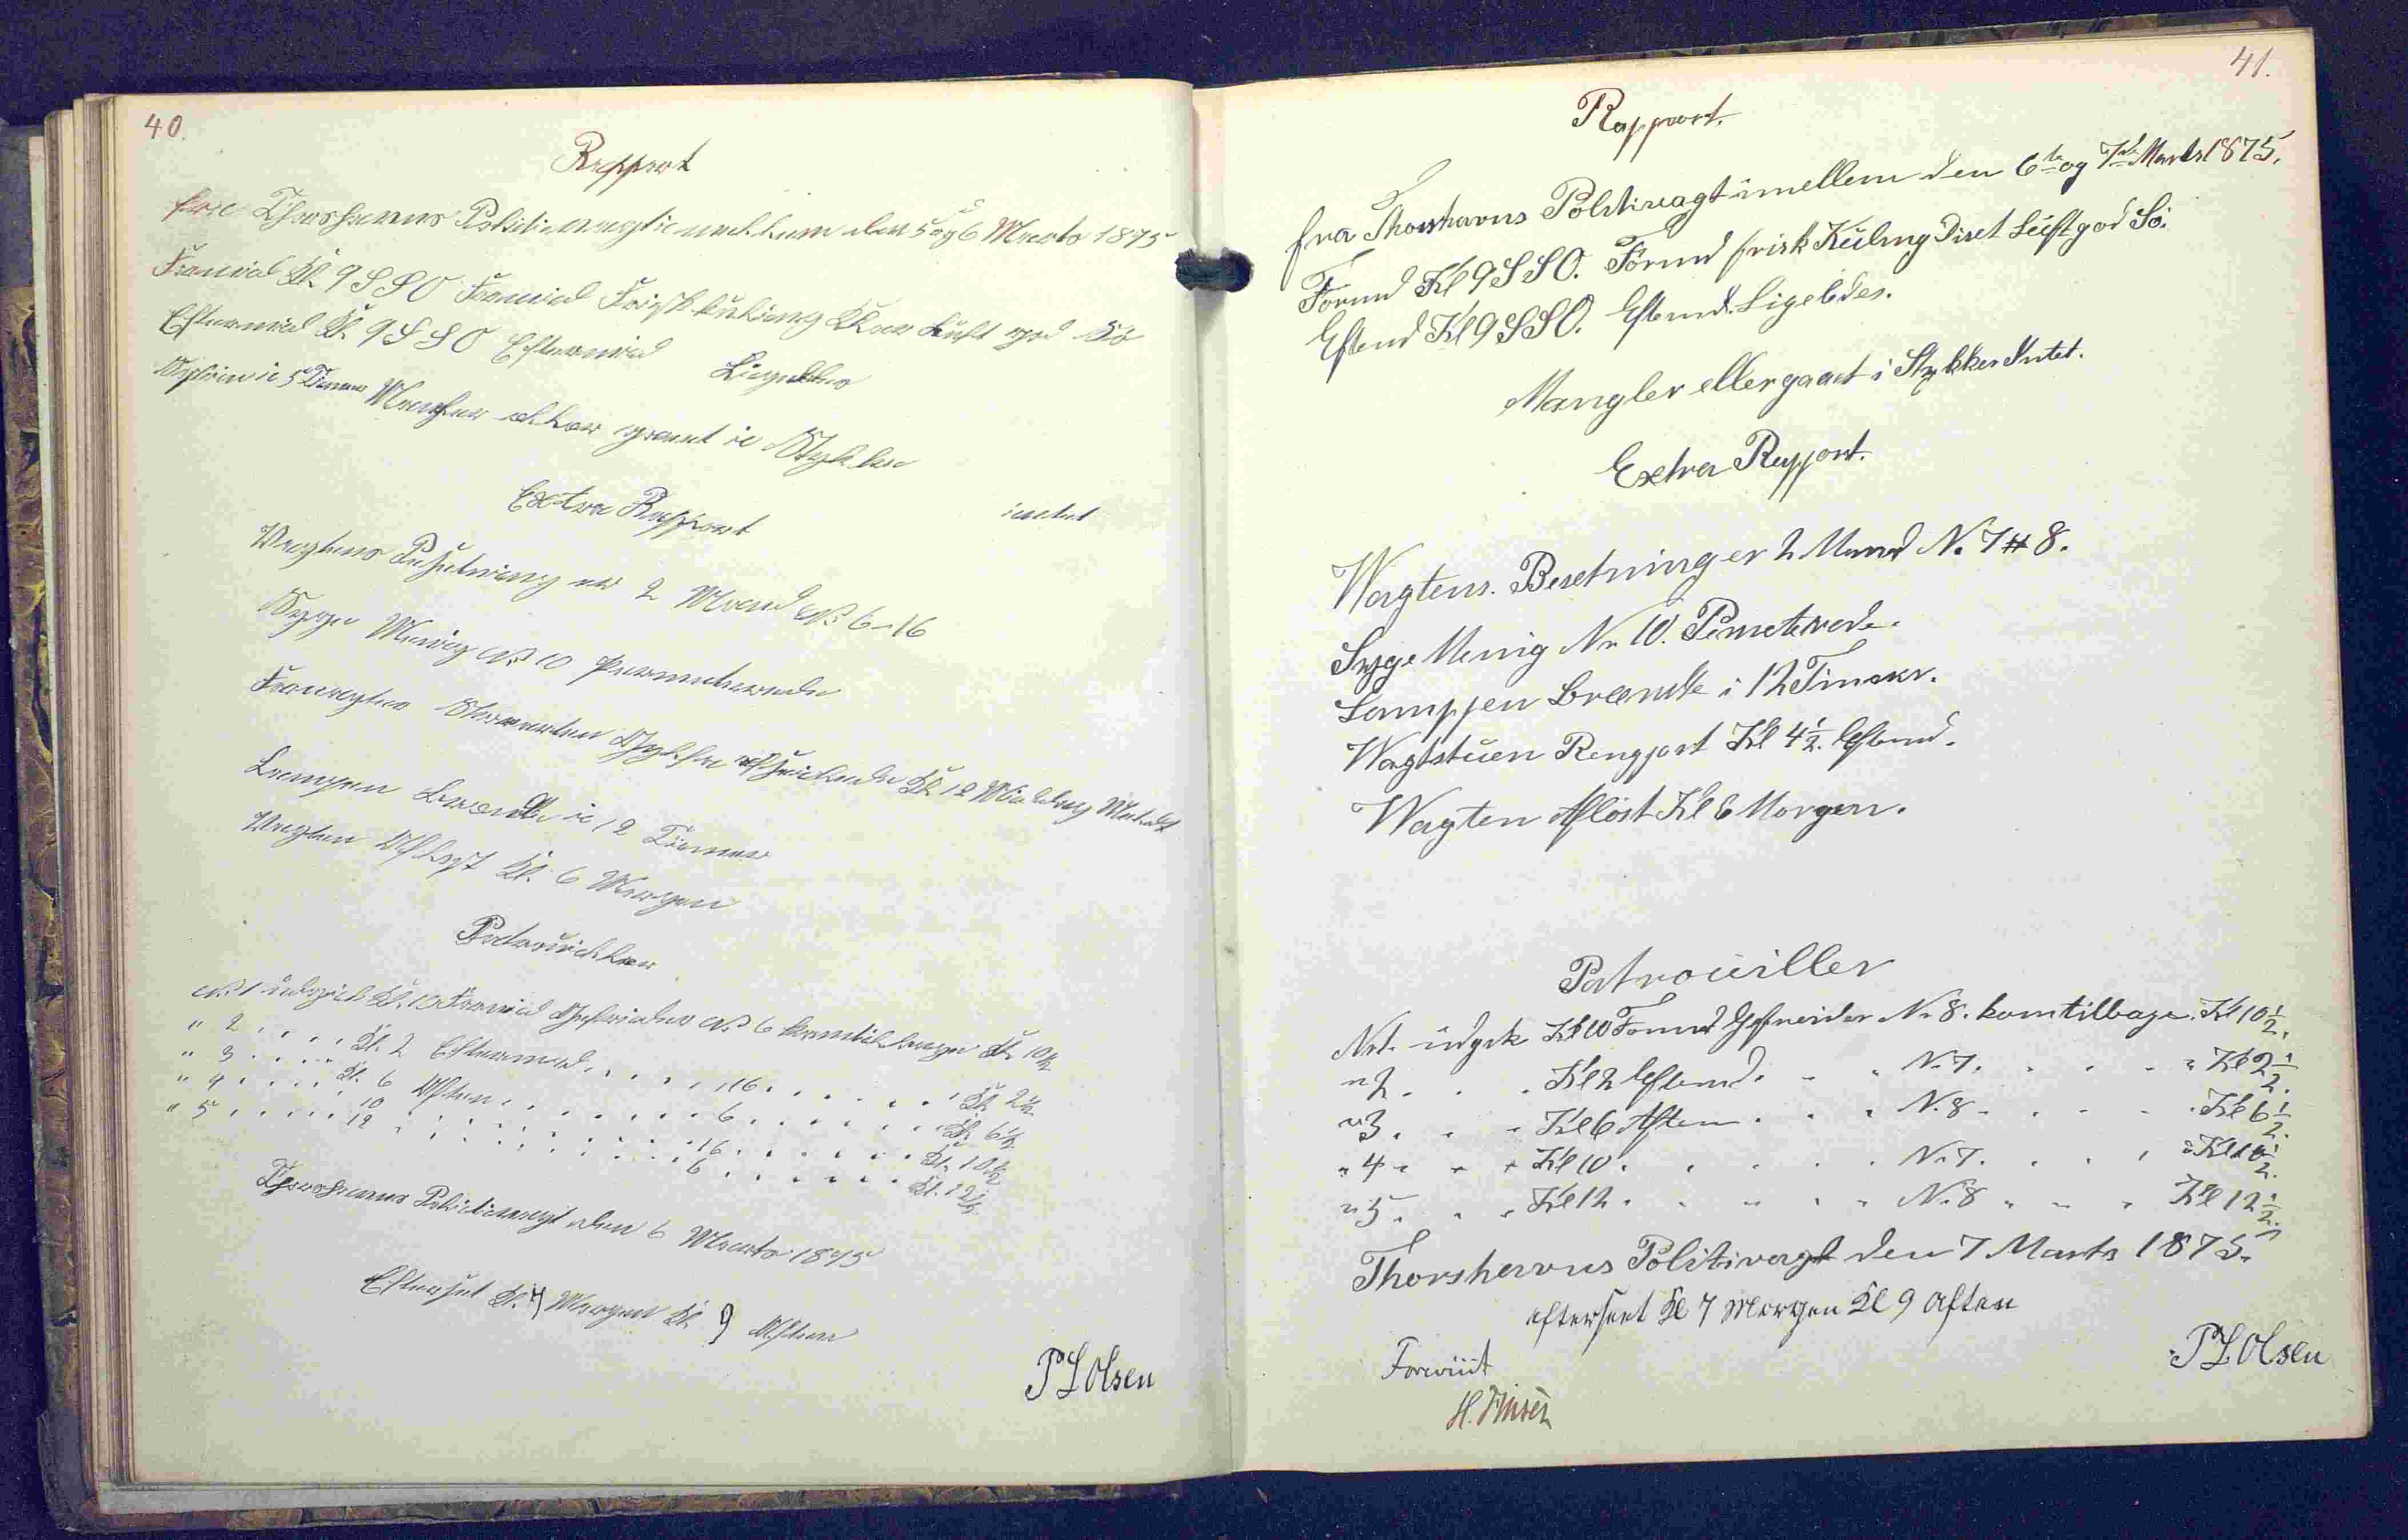 40.
Rapport
fra Thorshavns Politivagt imellem den 5 og 6 Marts 1875
Formid Kl. 9 S S O Formid Frisk kuling Klar Luft god Sö
Eftermid Kl. 9 S S O Eftermid Ligeledes
i 5 Timer Mangler eller gaaet i Stykker
intet
Extra Rapport
Vagtens Besetning er 2 Mand No 6 - 16
Syge Menig No 10 Permeterede
Kl 12 Middag
Lampen brændte i 12 Timer
Vagten Aflöst Kl. 6 Morgen
Patrouiller
No 1 udgik Kl. 10 Formid Gefreider No 6 kom tilbage Kl. 10½
" 2 . . . Kl. 2 Eftermid . . . . 16 . . . . Kl. 2½
" 3 . . . Kl. 6 Aften . . . . 6 . . . . Kl. 6½
" 4 . . . . 10 . . . . 16 . . . . Kl. 10½
" 5 . . . . 12 . . . . 6 . . . . Kl. 12½
Thorshavns Politivagt den 6 Marts 1875
Efterset Kl. 7 Morgen Kl. 9 Aften
P L Olsen
41.
Rapport.
fra Thorshavns Politivagt imellem den 6te og 7de Marts 1875.
Formd Kl 9 S S O. Formd frisk Kuling Diset Luft god Sö.
Eftmd Kl 9 S S O. Eftmd. Ligeledes.
Mangler eller gaaet i Stykker Intet.
Extra Rapport.
Wagtens. Besetning er 2 Mand N. 7 # 8.
Syge Menig Nr 10. Pemeterede.
Lamppen Brændte i 12 Timer.
Wagtstuen Rengjort Kl 4½. Eftmd.
Wagten Aflöst Kl 6 Morgen.
Patrouiller
Nr 1. udgik Kl 10 Formd Gefreider Nr 8. kom tilbage. Kl 10½.
" 2 . . . Kl 2 Eftmd. . . N. 7. . . . " Kl 2½.
" 3 . . . Kl 6 Aften . . . N. 8 . . . . Kl 6½.
" 4 . . . Kl 10 . . . . N. 7. . . . " Kl 10½.
" 5 . . . Kl 12 . . . . N. 8 . . . Kl 12½.
Thorshavns Politivagt den 7 Marts 1875.
efterseet Kl 7 Morgen Kl 9 Aften
P L Olsen
Foreviist
H. Finsen